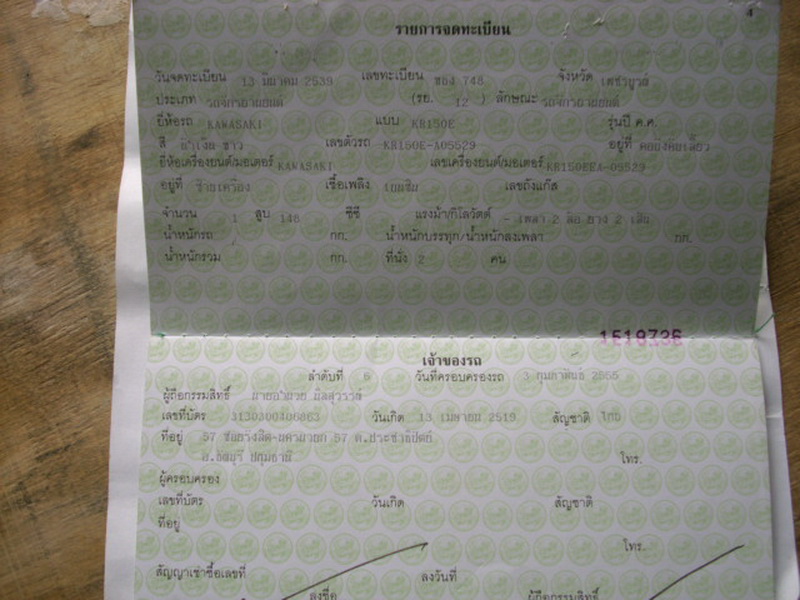 4
รายการจดทะเบียน
วันจดทะเบียน 13 มีนาคม 2539 เลขทะเบียน 748 จังหวัด เพชรบูรณ์
ประเภท รถจักรยานยนต์ (รย. 12 ) ลักษณะ รถจักรยานยนต์
ยี่ห้อรถ KAWASAKI แบบ KR150E รุ่นปี ค.ศ.
สี ขาว เลขตัวรถ KR150E-A05529 อยู่ที่ คอบังคับเลี้ยว
ยี่ห้อเครื่องยนต์/มอเตอร์ KAWASAKI เลขเครื่องยนต์/มอเตอร์ KR150EEA-05529
อยู่ที่ ซ้ายเครื่อง เชื้อเพลิง เบนซิน เลขถังแก๊ส
จำนวน 1 สูบ 148 ซีซี แรงม้า/กิโลวัตต์ - เพลา 2 ล้อ ยาง 2 เส้น
น้ำหนักรถ กก. น้ำหนักบรรทุก/น้ำหนักลงเพลา กก.
น้ำหนักรวม กก. ที่นั่ง 2 คน
1519736
เจ้าของรถ
ลำดับที่ 6 วันที่ครอบครองรถ 3 กุมภาพันธ์ 2555
ผู้ถือกรรมสิทธิ์
เลขที่บัตร 3130300406863 วันเกิด 13 เมษายน 2519 สัญชาติ ไทย
ที่อยู่ 57 ซอยรังสิต-นครนายก 57 ต.ประชาธิปัตย์
อ.ธัญบุรี ปทุมธานี โทร.
ผู้ครอบครอง
เลขที่บัตร วันเกิด สัญชาติ
ที่อยู่
โทร.
สัญญาเช่าซื้อเลขที่ ลงวันที่
ลงชื่อ ผู้ถือกรรมสิทธิ์